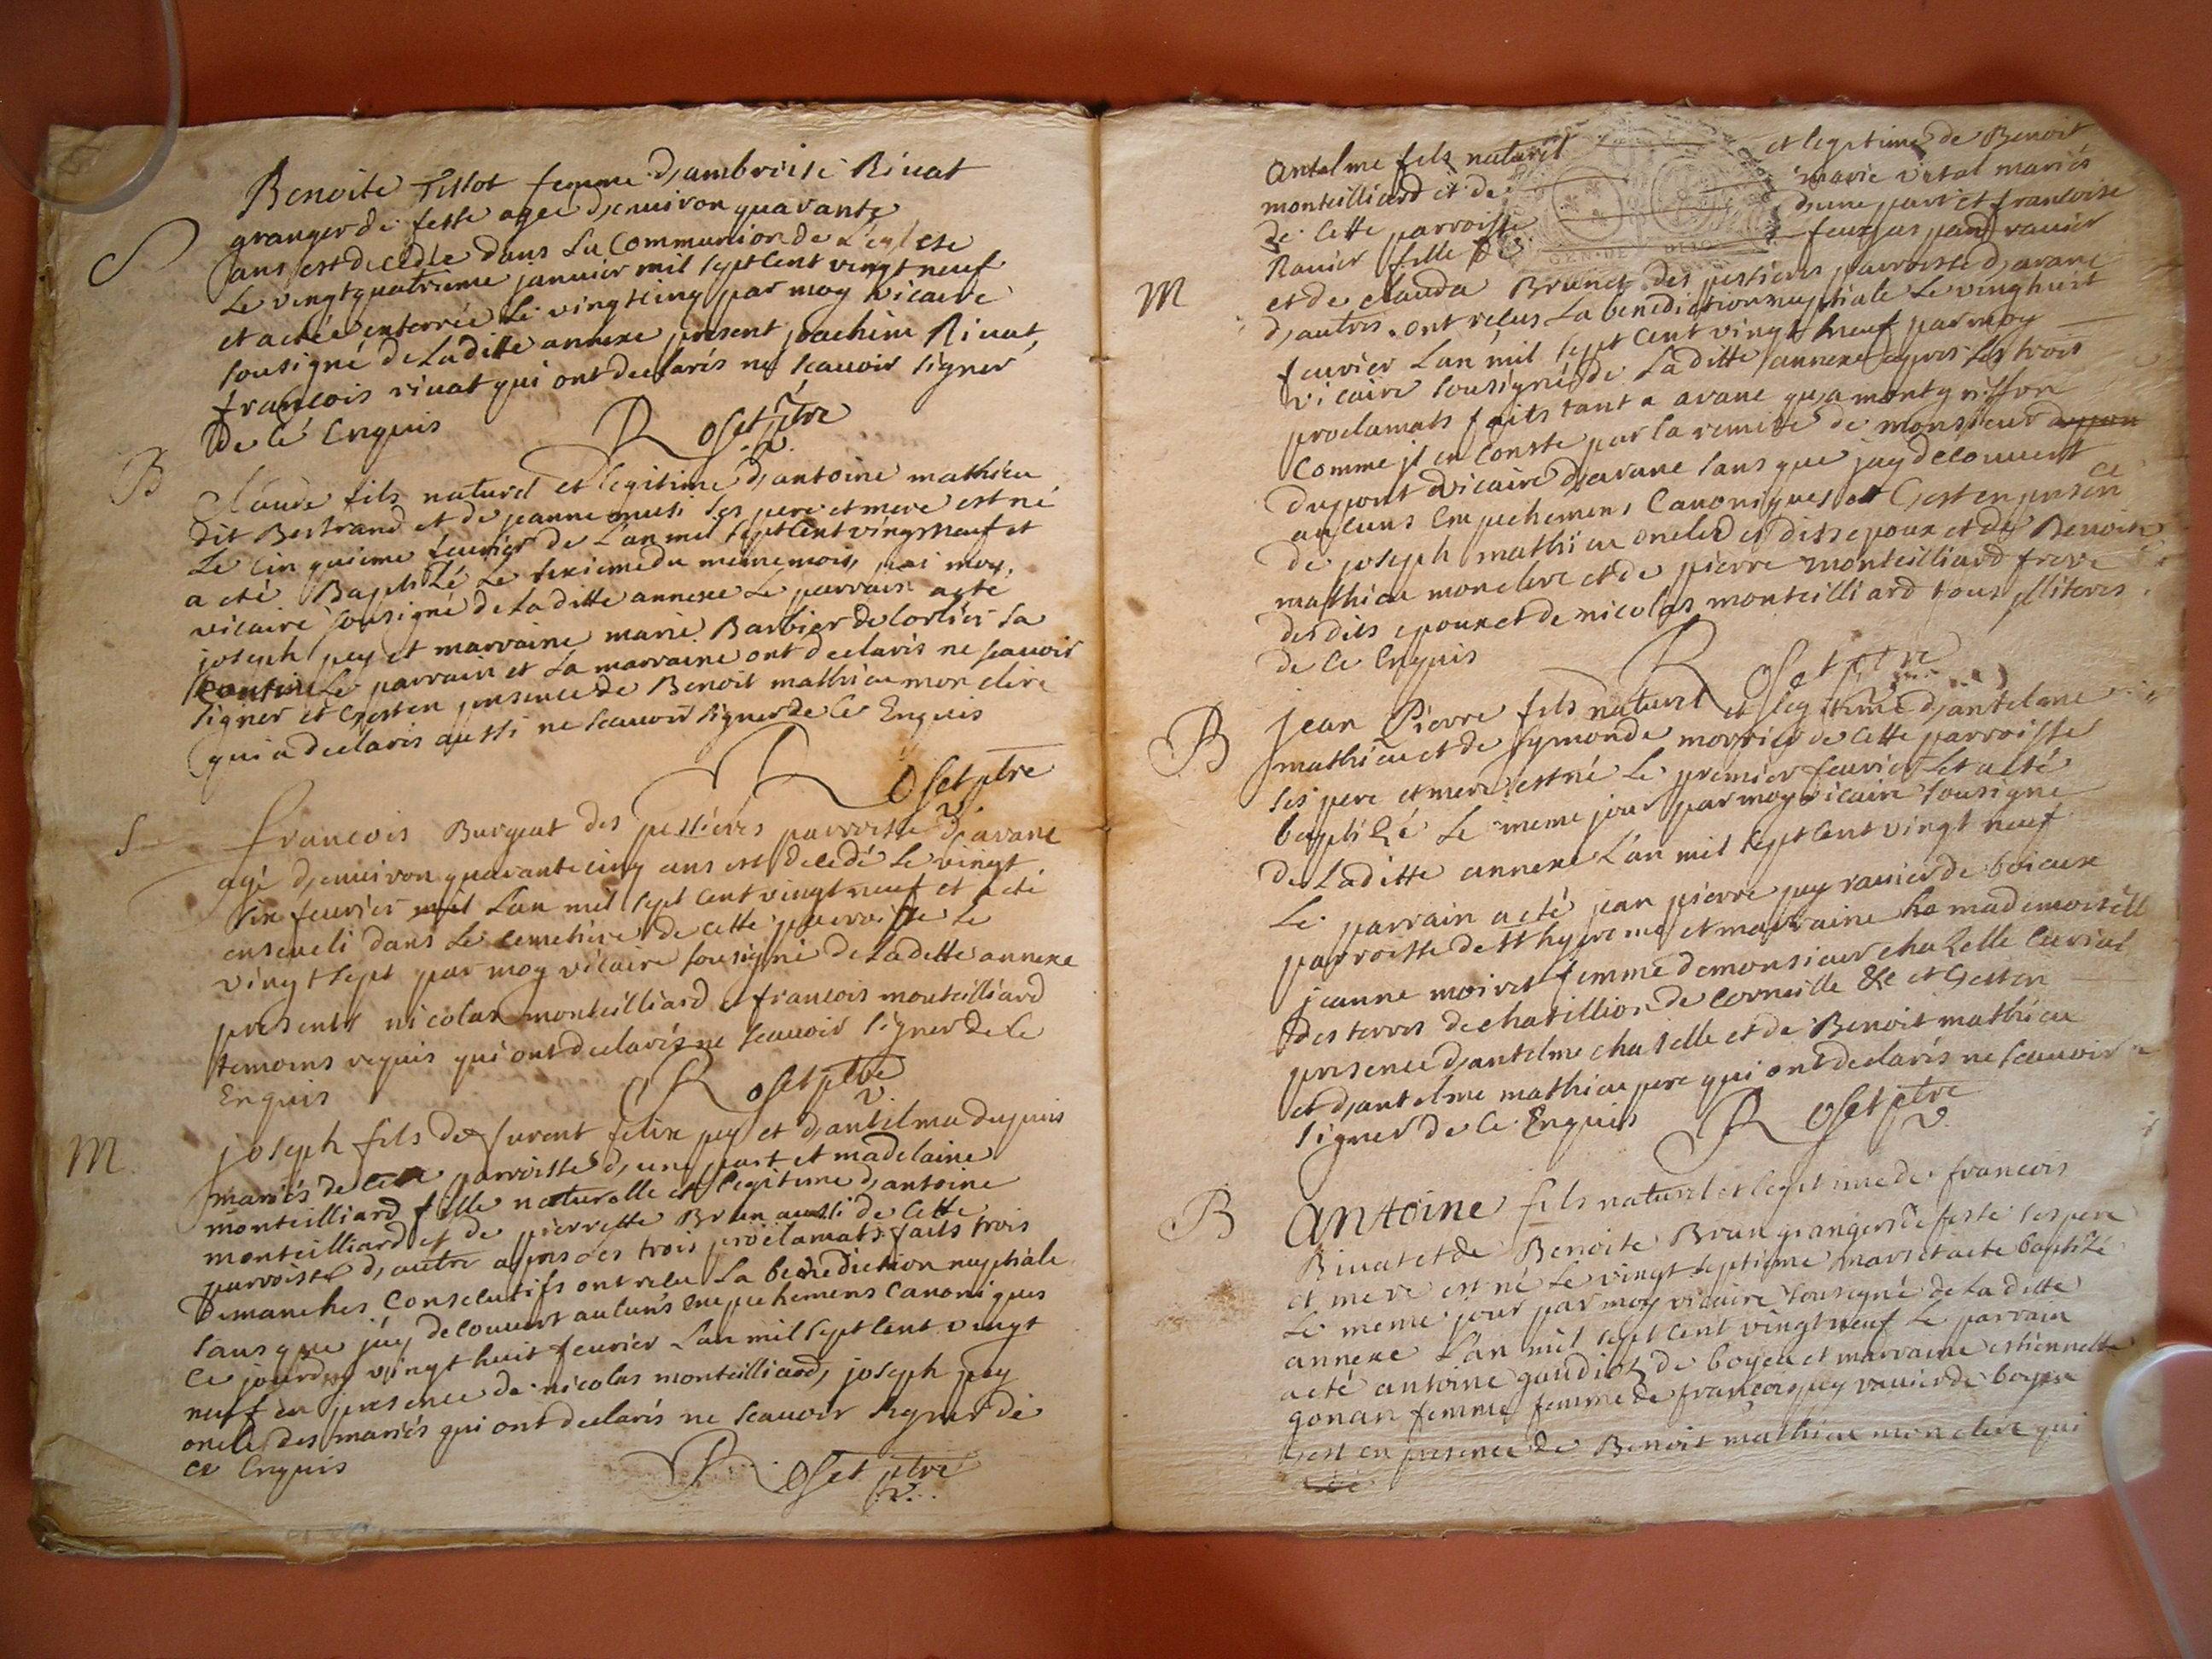 Benoite Tissot femme d'ambroise Rivat
granger de feste ageé d'environ quarante
S
ans est decedée dans La Communion de L'eglese
Le vingt quatrieme januier mil sept cent vingt neuf
et a etée enterrée Le vingt cinq par moy vicaire
sousigné de Laditte annexe present joachim Rivat,
francois rivat qui ont declarés ne scauoir signer
de ce Enquis
Roset ptre
v.
B
Claude fils naturel et legitime d'antoine mathieu
dit Bertrand et de jeanne ses pere et mere est né
Le cinquieme feurier de L'an mil sept Cent vingt neuf et
a eté Baptizé Le sixieme du meme mois, par moy,
vicaire sousigné de Laditte annexe Le parrain a eté
joseph pey et marraine marie Barbier de Corlier sa
Le parrain et La marraine ont declarés ne scauoir
signer et C'est en presence de Benoit mathieu mon clerc
qui a declarés aussi ne scauoir signer de Ce Enquis
Roset ptre
v.
S
francois Burgeat des pessieres parroisse d'avane
agé d'enuiron quarante cinq ans est decedé Le vingt
six feurier mil L'an mil sept Cent vingt neuf et a eté
enseueli dans Le cemetiere de cette parroisse Le
vingt sept par moy vicaire sousigné de Laditte annexe
presents nicolas monteilliard et francois monteilliard
temoins requis qui ont declarés ne scauoir signer de Ce
Enquis
Roset ptre
v.
M.
joseph fils de furent felix pey et d'antelma dupuis
mariés de parroisse d'une part et madelaine
monteilliard fille naturelle et legitime d'antoine
monteilliard et de pierrette Brun aussi de Cette
parroisse d'autre apres Les trois proclamats faits trois
Dimanches Consecutifs ont relu La benediction nuptiale
sans que j'ay decouuert aucuns empechemens Canoniques
Ce jourdhuy vingt huit feurier L'an mil sept Cent vingt
neuf en presence de nicolas monteilliard, joseph pey
oncle des mariés qui ont declarés ne scauoir signer de
ce Enquis
Roset ptre
v.
antelme fils naturel et legitime de Benoit
monteilliard et de marie vital mariés
de Cette parroisse d'une part et francoise
Ravier fille de ravier
GEN. DE DIJO
M
et de clauda Brunet des pessieres parroisse d'avane
d'autres. ont relus La benediction nuptiale Le vinghuit
feurier L'an mil sept Cent vingt neuf par moy
vicaire sousigné de Laditte annexe apres Les trois
proclamats faits tant a avane qu'a montgriffon
Comme jl en Conste par la remise de monsieur dupon
dupont vicaire d'avane sans que jay decouuert
aucuns empechemens Canoniques et C'est en presen ce
de joseph mathieu oncle desdits epoux et de Benoit
mathieu mon clerc et de pierre monteilliard frere
desdits epoux et de nicolas monteilliard tous jlliteres
de Ce Enquis
Roset ptre
B
jean Pierre fils naturel et legitime d'antelme
mathieu et de symonde de Cette parroisse
ses pere et mere est né Le premier feurier et a eté
baptizé Le meme jour par moy vicaire sousigné
de Laditte annexe L'an mil sept Cent vingt neuf
Le parrain a eté jean pierre pey ravier de boieux
parroisse de st hyerome et marraine mademoisell
jeanne moiret femme de monsieur chazelle Curial
des terres de chatillion de Corneille &c et C'est en
presence d'antelme chaselle et de Benoit mathieu
et d'antelme mathieu pere qui ont declarés ne scauoir
signer de Ce Enquis
Roset ptre
v.
B
antoine fils naturel et legitime de francois
Rivat et de Benoite Brun grangers de feste ses pere
et mere est né Le vingt septieme mars et a eté baptizé
Le meme jour par moy vicaire sousigné de La ditte
annexe L'an mil sept Cent vingt neuf Le parrain
a eté antoine gaudioz de boyeu et marraine estiennette
gonan femme femme de francois pey ravier de boyeu
C'est en presence de Benoit mathieu mon clerc qui